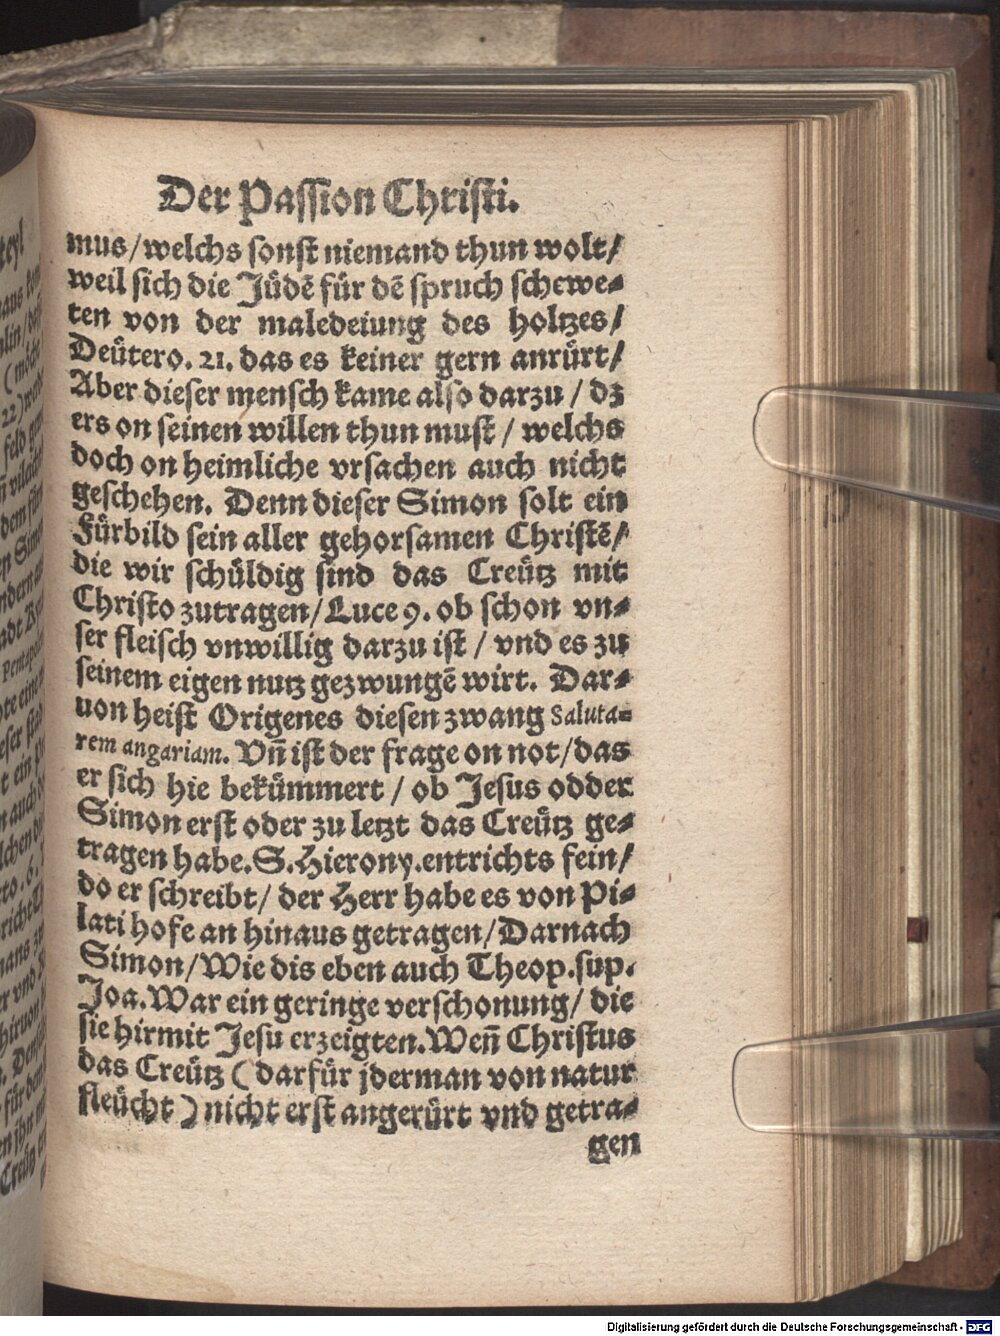 Der Passion Christi.
mus/welchs sonst niemand thun wolt/
weil sich die Jůdē für dē spruch schewe⸗
ten von der maledeiung des holtzes/
Deütero. 21. das es keiner gern anrürt/
Aber dieser mensch kame also darzu / dz
ers on seinen willen thun must / welchs
doch on heimliche vrsachen auch nicht
geschehen. Denn dieser Simon solt ein
Fürbild sein aller gehorsamen Christē/
die wir schüldig sind das Creütz mit
Christo zutragen/Luce 9. ob schon vn⸗
ser fleisch vnwillig darzu ist / vnd es zu
seinem eigen nutz gezwungē wirt. Dar⸗
uon heist Origenes diesen zwang Saluta⸗
rem angariam. Vn̄ ist der frage on not/das
er sich hie bekümmert / ob Jesus odder
Simon erst oder zu letzt das Creütz ge⸗
tragen habe. S. Hierony. entrichts fein/
do er schreibt/ der Herr habe es von Pi⸗
lati hofe an hinaus getragen/Darnach
Simon/Wie dis eben auch Theop. sup.
Joa. War ein geringe verschonung/ die
sie hirmit Jesu erzeigten. Wen̄ Christus
das Creütz ( darfür jderman von natur
fleücht ) nicht erst angerürt vnd getra⸗
gen
teyl
Digitalisierung gefördert durch die Deutsche Forschungsgemeinschaft - DFG